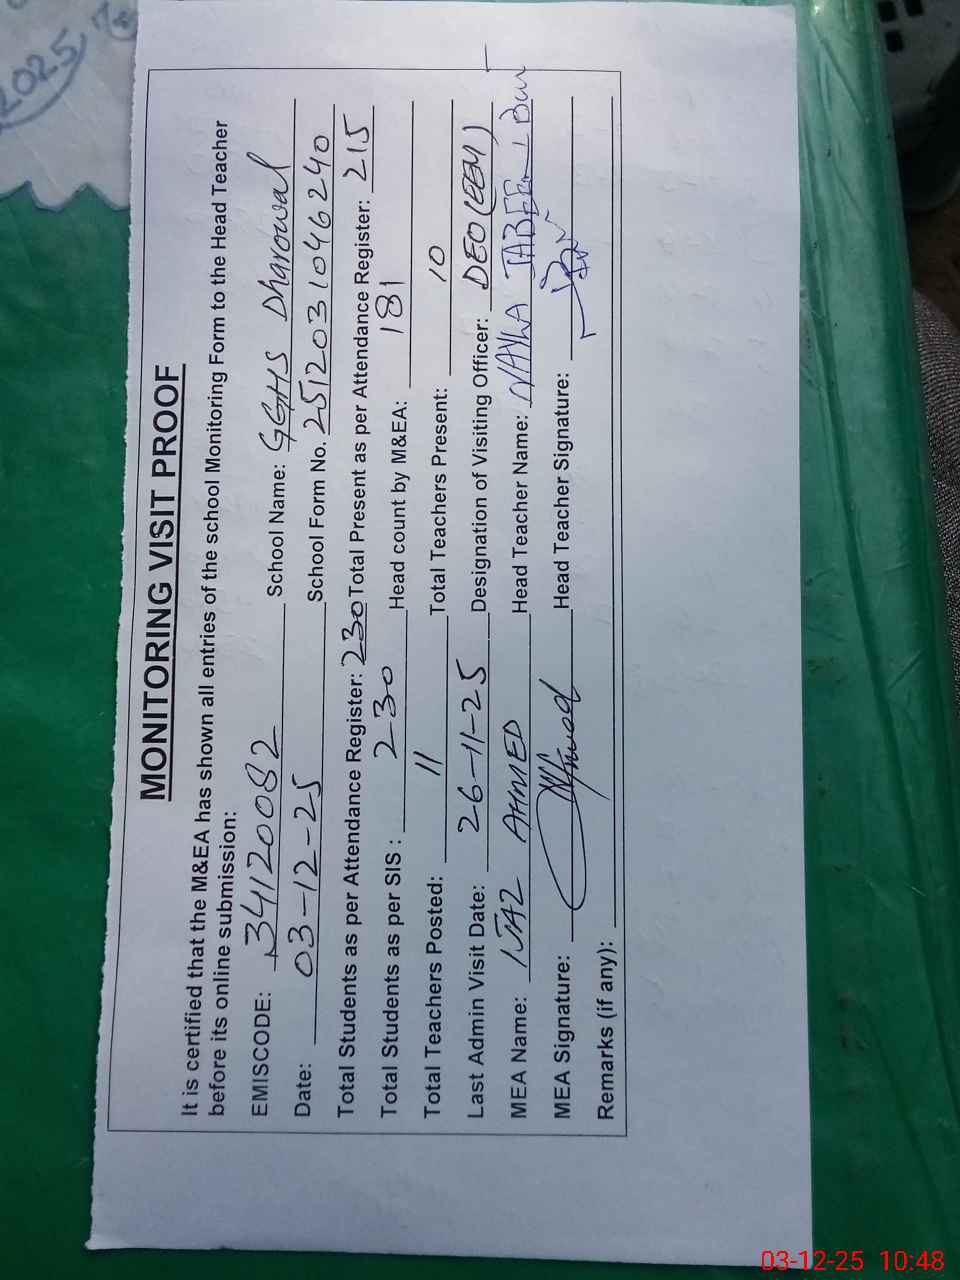 2025
MONITORING VISIT PROOF
It is certified that the M&EA has shown all entries of the school Monitoring Form to the Head Teacher
before its online submission:
EMISCODE: 34120082 School Name: GGHS Dharowal
Date: 03-12-25 School Form No. 2512031046240
Total Students as per Attendance Register: 230 Total Present as per Attendance Register: 215
Total Students as per SIS : 230 Head count by M&EA: 181
Total Teachers Posted: 11 Total Teachers Present: 10
Last Admin Visit Date: 26-11-25 Designation of Visiting Officer: DEO (EEM)
MEA Name: NAZ AHMED Head Teacher Name: NAYLA Butt
MEA Signature: Head Teacher Signature:
Remarks (if any):
03-12-25 10:48